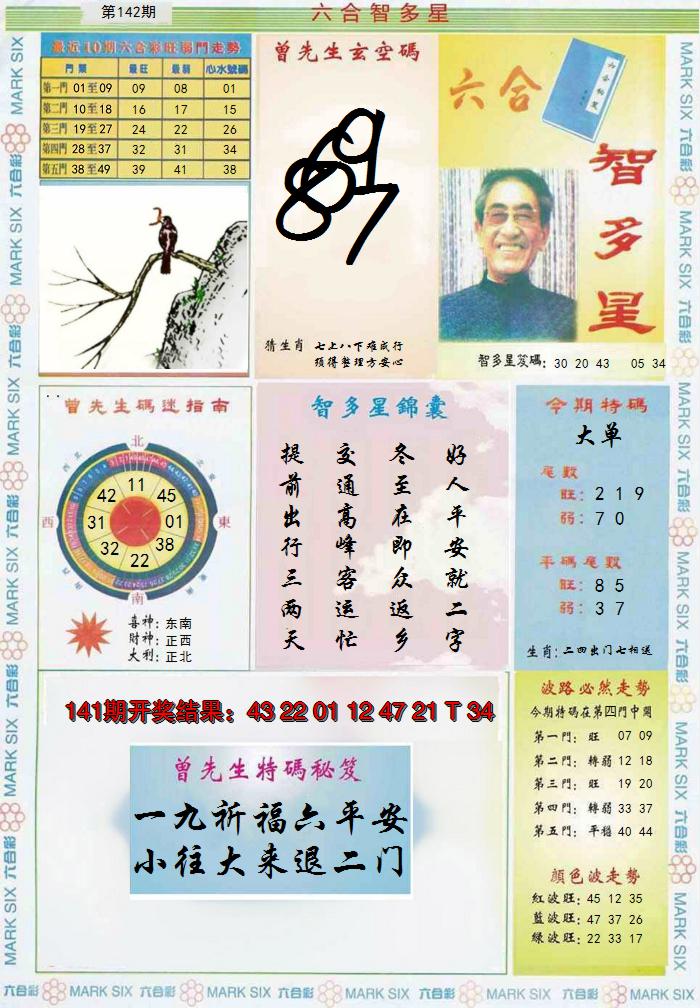 第142期
六合智多星
最近10期六合彩旺弱門走勢
門類 最旺 最弱 心水號碼
第一門 01至09 09 08 01
第二門 10至18 16 17 15
第三門 19至27 24 22 26
第四門 28至37 32 31 34
第五門 38至49 39 41 38
曾先生玄空碼
猜生肖 七上八下难成行
须得整理方安心
六合
六合秘笈
智多星
智多星笈碼: 30 20 43 05 34
曾先生碼迷指南
北
东北
西北
西
東
南
11
42
45
31
01
32
38
22
喜神: 东南
財神: 正西
大利: 正北
智多星錦囊
好人平安就二字
冬至在即众返乡
交通高峰客运忙
提前出行三两天
今期特碼
大单
尾数
旺: 2 1 9
弱: 7 0
平碼尾数
旺: 8 5
弱: 3 7
生肖: 二四出门七相送
141期开奖结果：43 22 01 12 47 21 T 34
曾先生特碼秘笈
一九祈福六平安
小往大来退二门
波路必然走勢
今期特碼在第四門中開
第一門: 旺 07 09
第二門: 轉弱 12 18
第三門: 旺 19 20
第四門: 轉弱 33 37
第五門: 平穩 40 44
顏色波走勢
紅波旺: 45 12 35
藍波旺: 47 37 26
綠波旺: 22 33 17
六合彩 MARK SIX 六合彩 MARK SIX 六合彩 MARK SIX 六合彩 MARK SIX 六合彩